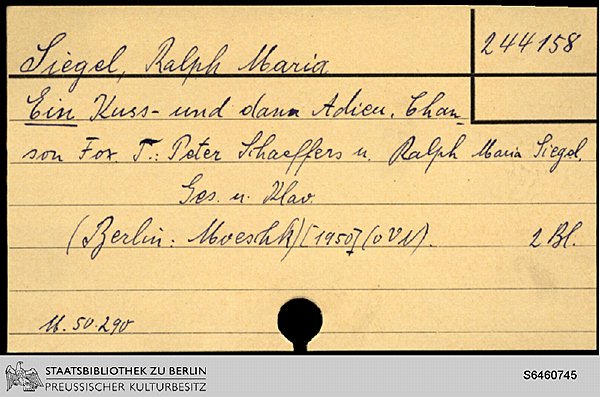 244158
Siegel, Ralph Maria
Ein Kuss - und dann Adieu. Chan-
son Fox. T.: Peter Schaeffers u. Ralph Maria Siegel.
Ges. u. Klav.
(Berlin: Moeschk) [1950] (oVN). 2 Bl.
M. 50.290
STAATSBIBLIOTHEK ZU BERLIN
PREUSSISCHER KULTURBESITZ
S6460745